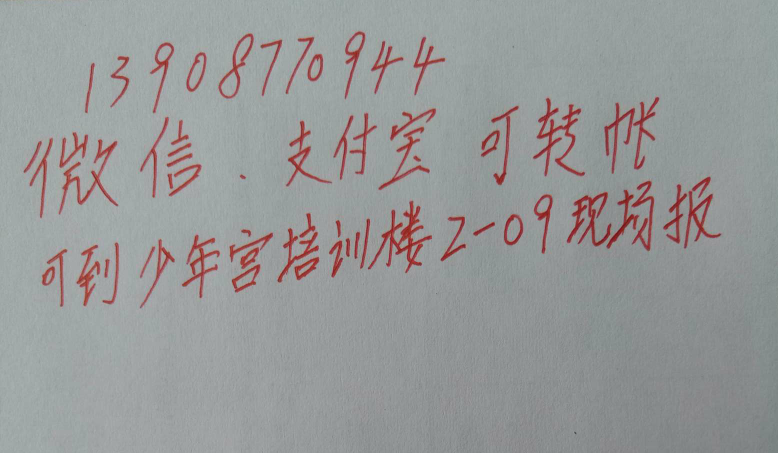 13908770944
微信.支付宝 可转帐
可到少年宫培训楼2-09现场报